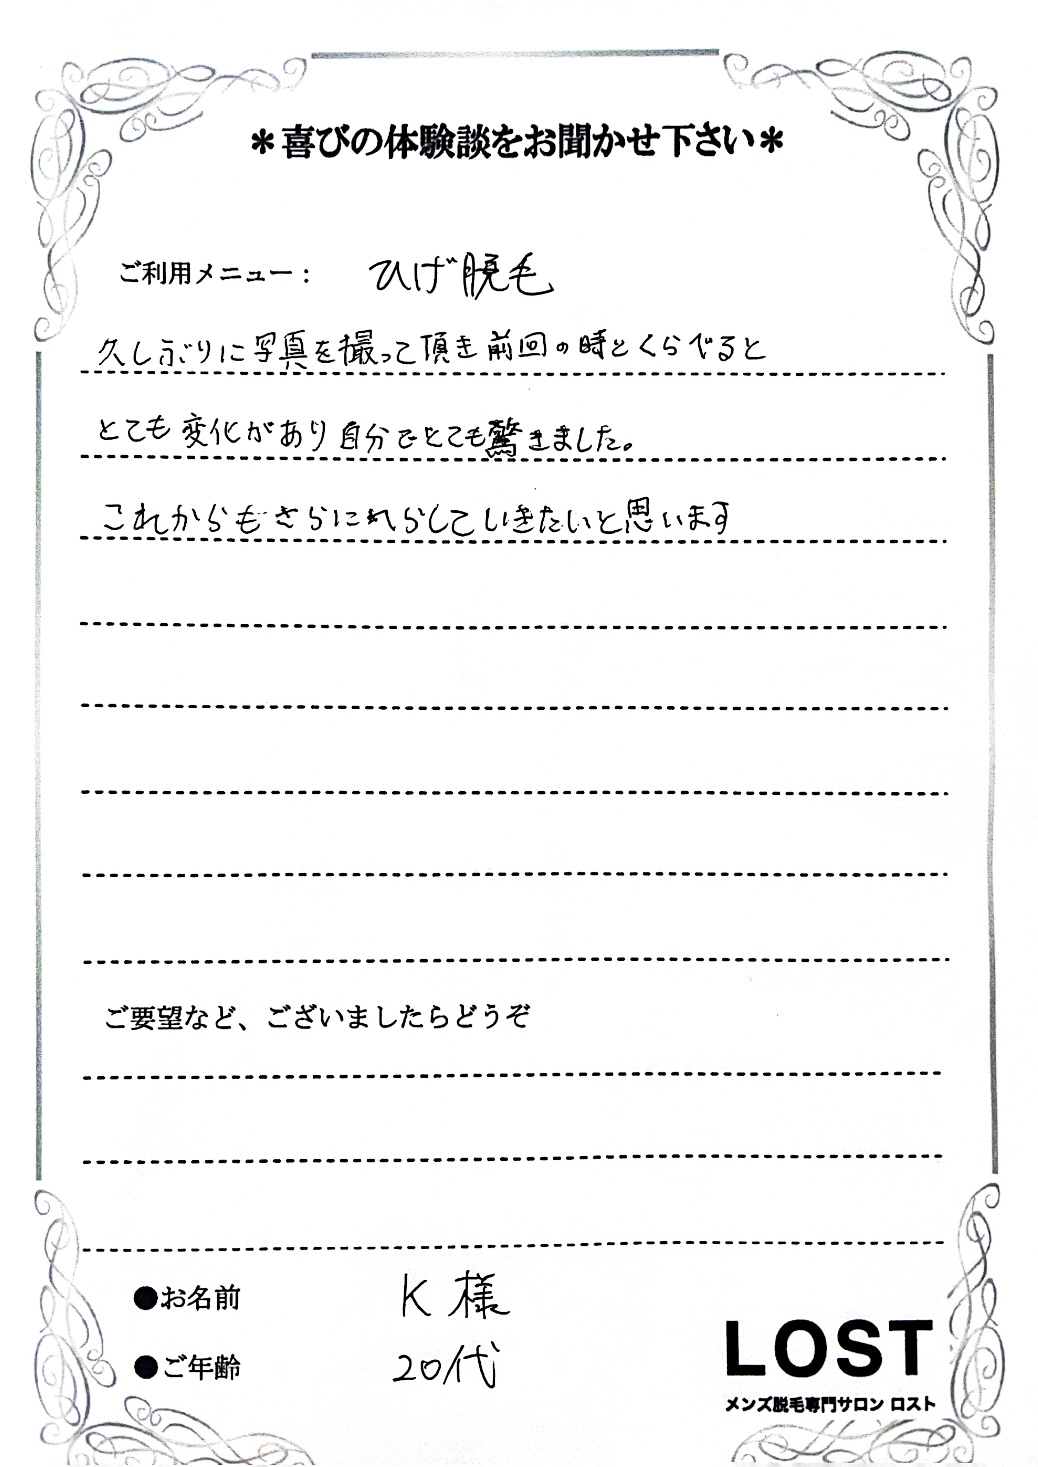 ＊喜びの体験談をお聞かせ下さい＊
ご利用メニュー： ひげ脱毛
久しぶりに写真を撮って頂き前回の時とくらべると
とても変化があり自分でとても驚きました。
これからもさらにへらしていきたいと思います
ご要望など、ございましたらどうぞ
●お名前 K様
●ご年齢 20代
LOST
メンズ脱毛専門サロン ロスト